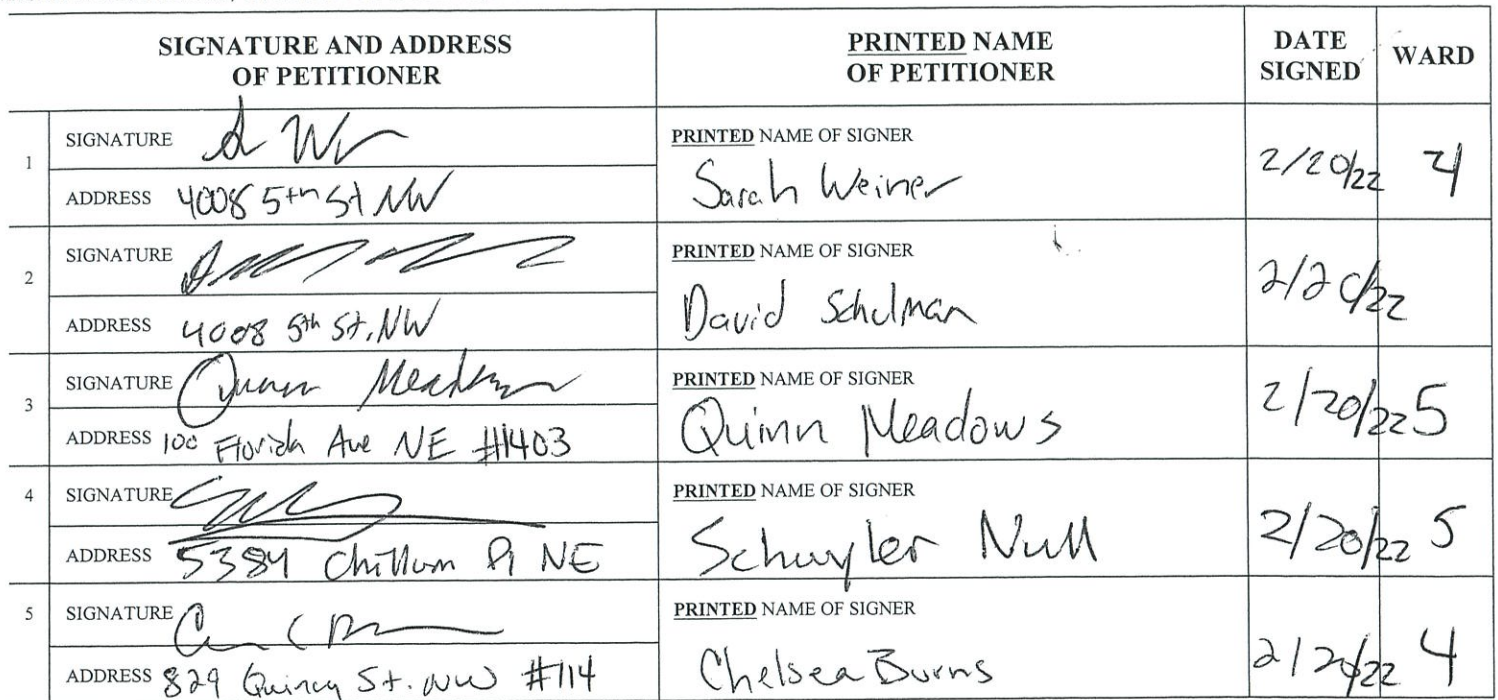 SIGNATURE AND ADDRESS OF PETITIONER
PRINTED NAME OF PETITIONER
DATE SIGNED
WARD
1
SIGNATURE
ADDRESS 4008 5th St NW
PRINTED NAME OF SIGNER
Sarah Weiner
2/20/22
4
2
SIGNATURE
ADDRESS 4008 5th St. NW
PRINTED NAME OF SIGNER
David Schulman
2/20/22
3
SIGNATURE Quinn Meadows
ADDRESS 100 Florida Ave NE #1403
PRINTED NAME OF SIGNER
Quinn Meadows
2/20/22
5
4
SIGNATURE
ADDRESS 5384 Chillum Pl NE
PRINTED NAME OF SIGNER
Schuyler Null
2/20/22
5
5
SIGNATURE
ADDRESS 829 Quincy St. NW #114
PRINTED NAME OF SIGNER
Chelsea Burns
2/20/22
4